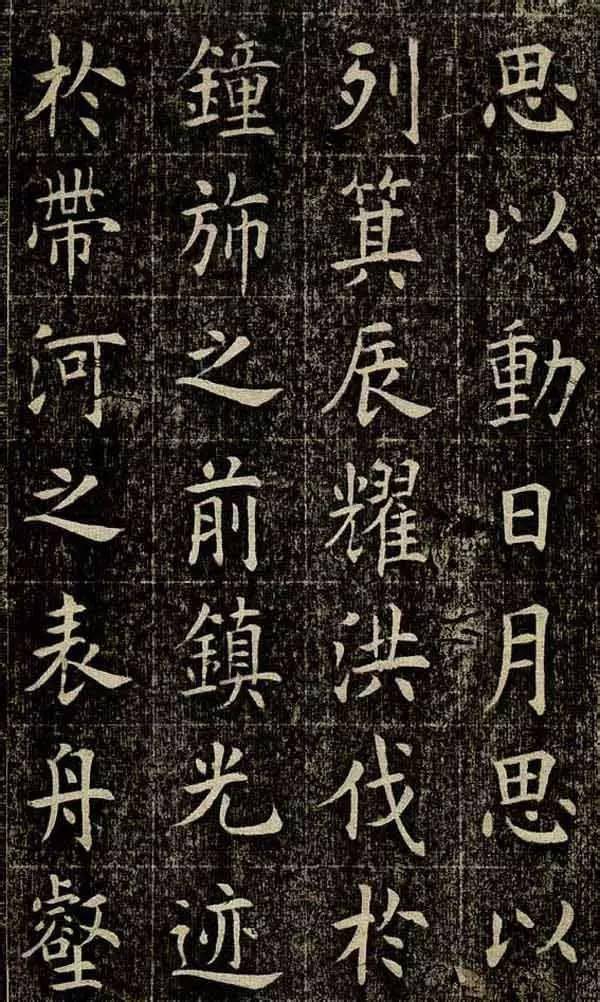 思以動日月思以
列箕辰耀洪伐於
鐘旆之前鎮光迹
於帶河之表舟壑